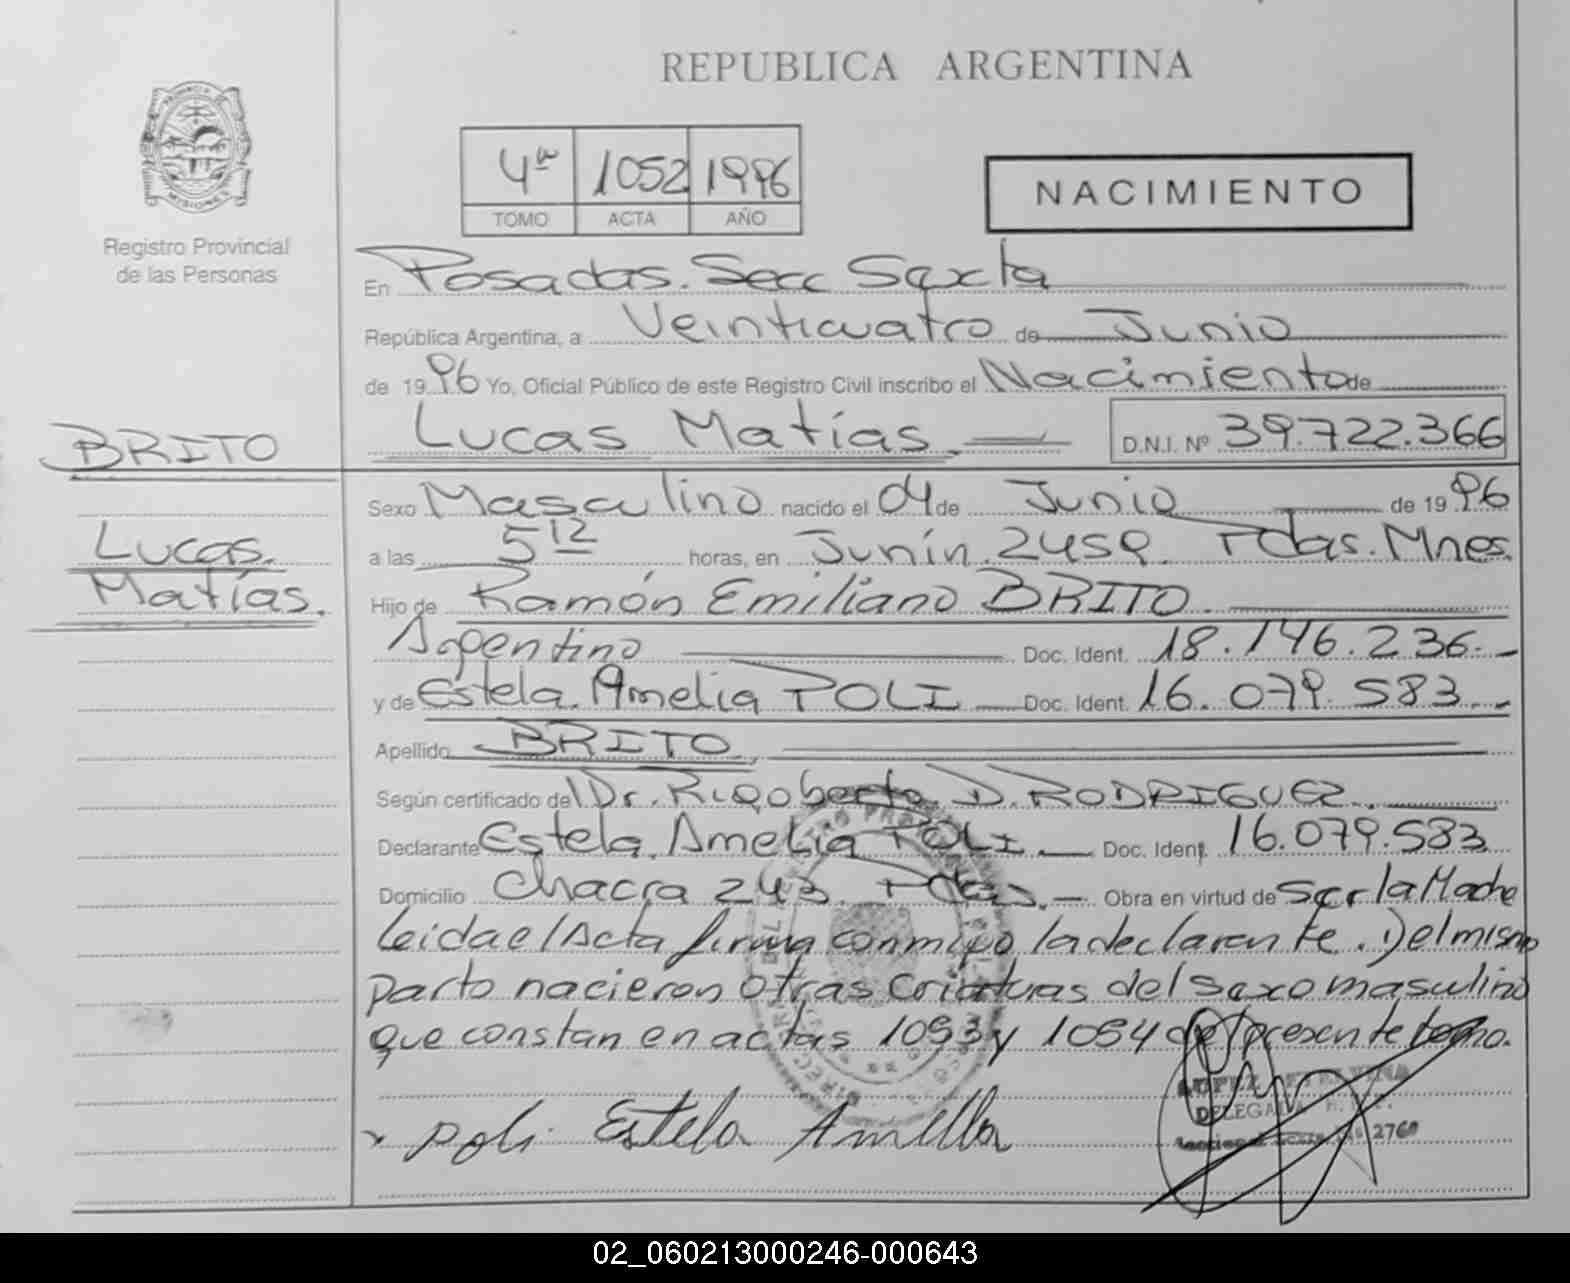 REPUBLICA ARGENTINA
PROVINCIA
MISIONES
Registro Provincial
de las Personas
4ª 1052 1996
TOMO ACTA AÑO
NACIMIENTO
En Posadas. Secc Sexta
República Argentina, a Veinticuatro de Junio
de 1996 Yo, Oficial Público de este Registro Civil inscribo el Nacimiento de
BRITO
Lucas Matías D.N.I. Nº 39.722.366
Sexo Masculino nacido el 04 de Junio de 1996
Lucas.
Matías.
a las 5 12 horas, en Junín. 2459. Pdas. Mnes.
Hijo de Ramón Emiliano BRITO.
Argentino Doc. Ident. 18.146.236.-
y de Estela. Amelia POLI Doc. Ident. 16.079.583.-
Apellido BRITO
Según certificado del Dr. Rigoberto D. RODRIGUEZ.
Declarante Estela. Amelia POLI Doc. Ident. 16.079.583
Domicilio Chacra 243. Pdas. Obra en virtud de Ser la Madre
Leida el Acta firma conmigo la declarante. Del mismo
parto nacieron otras criaturas del sexo masculino
que constan en actas 1053 y 1054 del presente tomo.
LOPEZ ETELVINA
DELEGADA
2760
Poli Estela Amelia
02_060213000246-000643